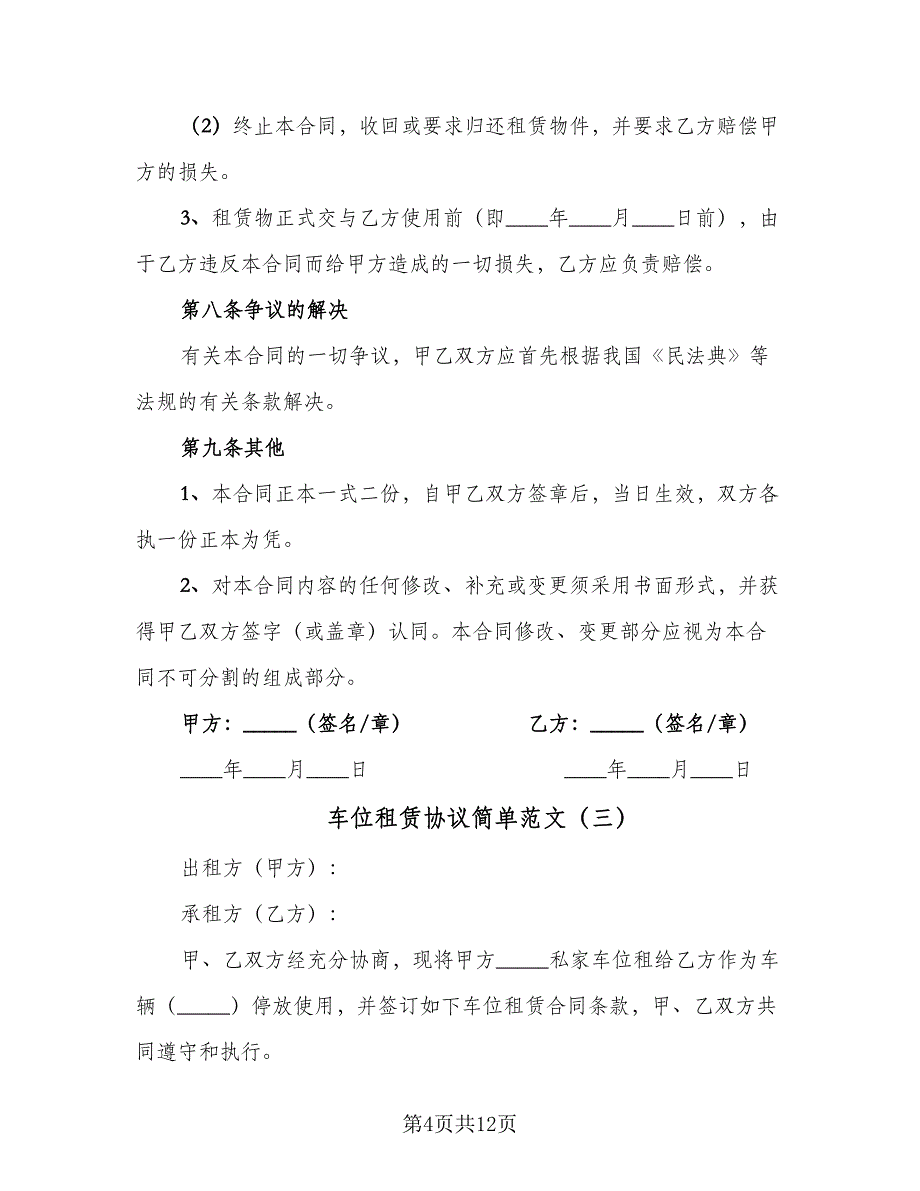 （2）终止本合同，收回或要求归还租赁物件，并要求乙方赔偿甲
方的损失。
3、租赁物正式交与乙方使用前（即____年____月____日前），由
于乙方违反本合同而给甲方造成的一切损失，乙方应负责赔偿。
第八条争议的解决
有关本合同的一切争议，甲乙双方应首先根据我国《民法典》等
法规的有关条款解决。
第九条其他
1、本合同正本一式二份，自甲乙双方签章后，当日生效，双方各
执一份正本为凭。
2、对本合同内容的任何修改、补充或变更须采用书面形式，并获
得甲乙双方签字（或盖章）认同。本合同修改、变更部分应视为本合
同不可分割的组成部分。
甲方：_____（签名/章） 乙方：_____（签名/章）
____年____月____日 ____年____月____日
车位租赁协议简单范文（三）
出租方（甲方）：
承租方（乙方）：
甲、乙双方经充分协商，现将甲方_____私家车位租给乙方作为车
辆（_____）停放使用，并签订如下车位租赁合同条款，甲、乙双方共
同遵守和执行。
第4页共12页